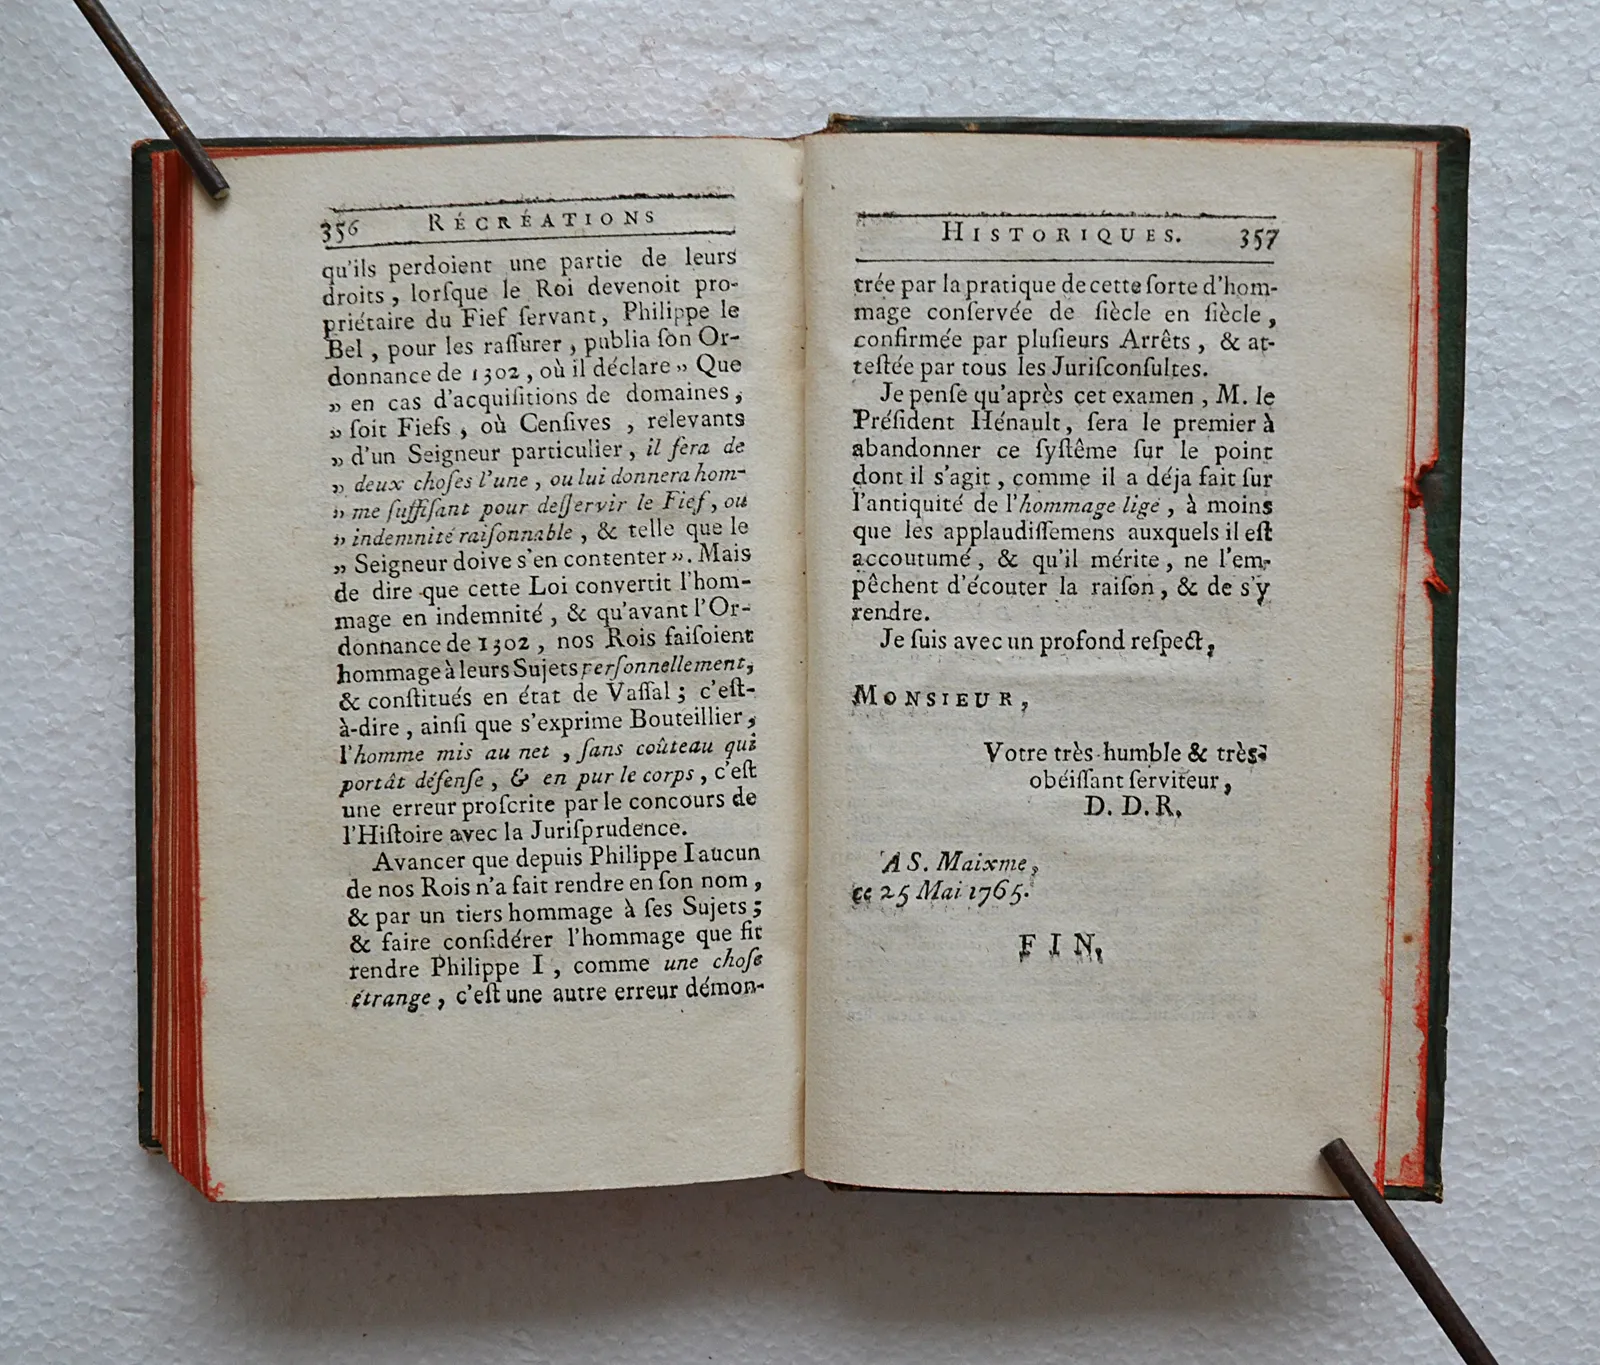 356 RÉCRÉATIONS
qu'ils perdoient une partie de leurs
droits, lorſque le Roi devenoit pro-
priétaire du Fief ſervant, Philippe le
Bel, pour les raſſurer, publia ſon Or-
donnance de 1302, où il déclare „ Que
„ en cas d'acquiſitions de domaines,
„ ſoit Fiefs, où Cenſives, relevants
„ d'un Seigneur particulier, il ſera de
„ deux choſes l'une, ou lui donnera hom-
„ me ſuffiſant pour deſſervir le Fief, ou
„ indemnité raiſonnable, & telle que le
„ Seigneur doive s'en contenter „. Mais
de dire que cette Loi convertit l'hom-
mage en indemnité, & qu'avant l'Or-
donnance de 1302, nos Rois faiſoient
hommage à leurs Sujets perſonnellement,
& conſtitués en état de Vaſſal; c'eſt-
à-dire, ainſi que s'exprime Bouteillier,
l'homme mis au net, ſans coûteau qui
portât défenſe, & en pur le corps, c'eſt
une erreur proſcrite par le concours de
l'Hiſtoire avec la Juriſprudence.
Avancer que depuis Philippe I aucun
de nos Rois n'a fait rendre en ſon nom,
& par un tiers hommage à ſes Sujets;
& faire conſidérer l'hommage que fit
rendre Philippe I, comme une choſe
étrange, c'eſt une autre erreur démon-
HISTORIQUES. 357
trée par la pratique de cette ſorte d'hom-
mage conſervée de ſiècle en ſiècle,
confirmée par pluſieurs Arrêts, & at-
teſtée par tous les Juriſconſultes.
Je penſe qu'après cet examen, M. le
Préſident Hénault, ſera le premier à
abandonner ce ſyſtême ſur le point
dont il s'agit, comme il a déja fait ſur
l'antiquité de l'hommage lige, à moins
que les applaudiſſemens auxquels il eſt
accoutumé, & qu'il mérite, ne l'em-
pêchent d'écouter la raiſon, & de s'y
rendre.
Je ſuis avec un profond reſpect,
MONSIEUR,
Votre très-humble & très-
obéiſſant ſerviteur,
D. D. R.
A S. Maixme,
ce 25 Mai 1765.
FIN.